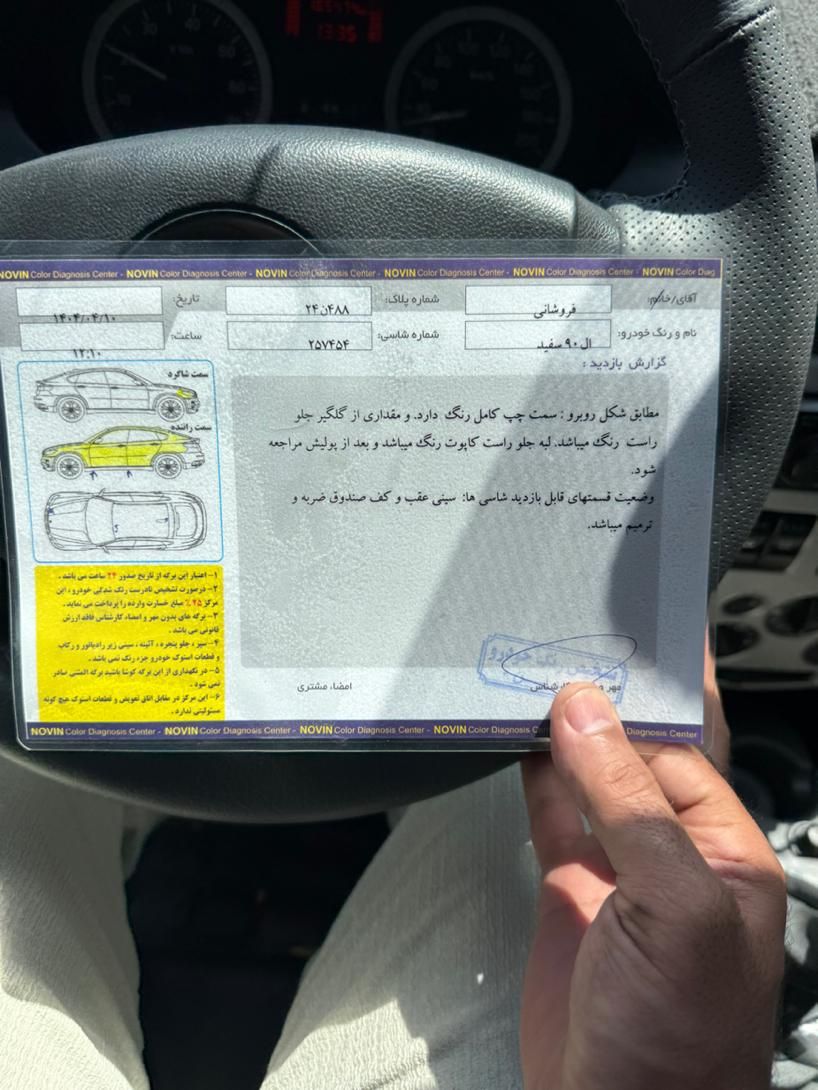 13:35
NOVIN Color Diagnosis Center - NOVIN Color Diagnosis Center - NOVIN Color Diagnosis Center - NOVIN Color Diagnosis Center - NOVIN Color Diagnosis Center - NOVIN Color Diag
آقای/خانم: فروشانی شماره پلاک: ۲۴ن۴۸۸ تاریخ: ۱۴۰۴/۰۴/۱۰
نام و رنگ خودرو: ال۹۰ سفید شماره شاسی: ۲۵۷۴۵۴ ساعت: ۱۲:۱۰
گزارش بازدید:
مطابق شکل روبرو : سمت چپ کامل رنگ دارد. و مقداری از گلگیر جلو
راست رنگ میباشد. لبه جلو راست کاپوت رنگ میباشد و بعد از پولیش مراجعه
شود.
وضعیت قسمتهای قابل بازدید شاسی ها: سینی عقب و کف صندوق ضربه و
ترمیم میباشد.
سمت شاگرد
سمت راننده
۱- اعتبار این برگه از تاریخ صدور ۲۴ ساعت می باشد .
۲- درصورت تشخیص نادرست رنگ شدگی خودرو ، این
مرکز ۲۵٪ مبلغ خسارت وارده را پرداخت می نماید .
۳- برگه های بدون مهر و امضاء کارشناس فاقد ارزش
قانونی می باشد .
۴- سپر ، جلو پنجره ، آئینه ، سینی زیر رادیاتور و رکاب
و قطعات استوک خودرو جزء رنگ نمی باشد .
۵- در نگهداری از این برگه کوشا باشید برگه المثنی صادر
نمی شود .
۶- این مرکز در مقابل اتاق تعویض و قطعات استوک هیچ گونه
مسئولیتی ندارد .
تشخیص رنگ خودرو
مهر و کارشناس
امضاء مشتری
NOVIN Color Diagnosis Center - NOVIN Color Diagnosis Center - NOVIN Color Diagnosis Center - NOVIN Color Diagnosis Center